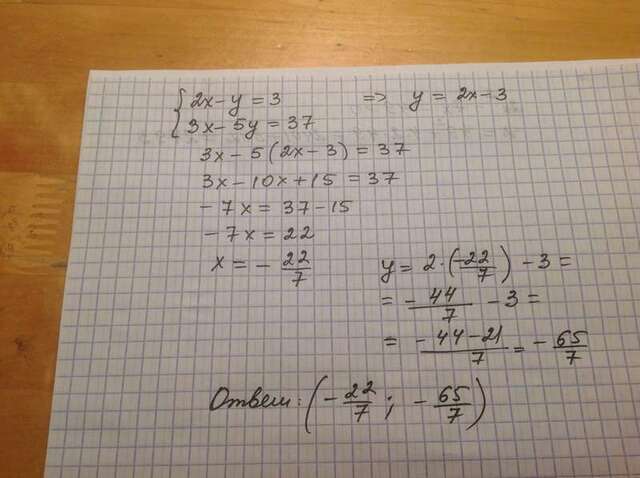 { 2x - y = 3 => y = 2x - 3
3x - 5y = 37
3x - 5(2x - 3) = 37
3x - 10x + 15 = 37
- 7x = 37 - 15
- 7x = 22
x = - 22/7
y = 2 · (-22/7) - 3 =
= - 44/7 - 3 =
= - 44 - 21/7 = - 65/7
Ответ: (- 22/7 ; - 65/7)